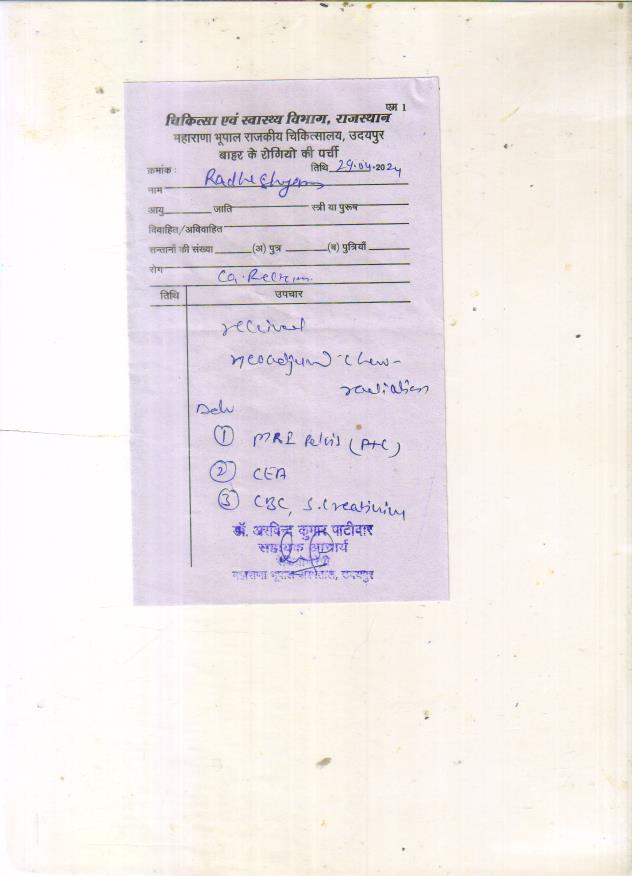 एम 1
चिकित्सा एवं स्वास्थ्य विभाग, राजस्थान
महाराणा भूपाल राजकीय चिकित्सालय, उदयपुर
बाहर के रोगियो की पर्ची
क्रमांक : तिथि 29.04.2024
नाम Radhe Shyam
आयु जाति स्त्री या पुरूष
विवाहित/अविवाहित
सन्तानों की संख्या (अ) पुत्र (ब) पुत्रियाँ
रोग Ca. Rectum
तिथि उपचार
received
neoadjuvant chemo-
radiation
Adv
1 MRI Pelvis (P+C)
2 CEA
3 CBC, S. Creatinine
डॉ. अरविन्द कुमार पाटीदार
सहायक आचार्य
महाराणा भूपाल अस्पताल, उदयपुर